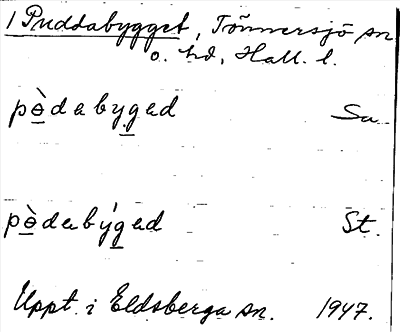 1 Puddabygget, Tönnersjö sn
o. hd, Hall. l.
pɵ̀dabygad Su
pɵ̀dabýgad St.
Uppt. i Eldsberga sn. 1947.